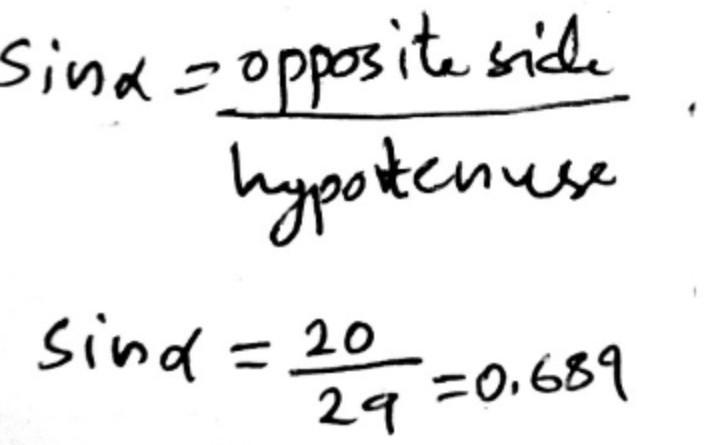 Sinα = opposite side
hypotenuse
Sinα = 20
29 = 0.689